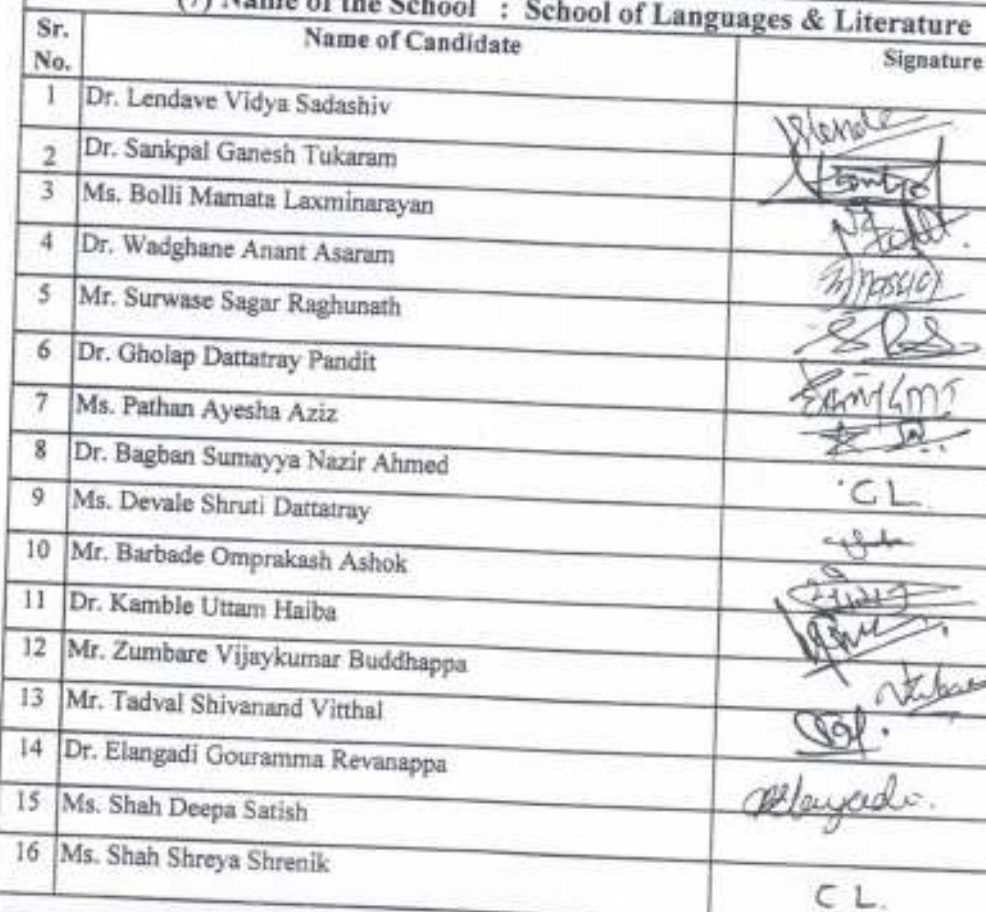 (7) Name of the School : School of Languages & Literature
Sr. No. Name of Candidate Signature
1 Dr. Lendave Vidya Sadashiv
2 Dr. Sankpal Ganesh Tukaram
3 Ms. Bolli Mamata Laxminarayan
4 Dr. Wadghane Anant Asaram
5 Mr. Surwase Sagar Raghunath
6 Dr. Gholap Dattatray Pandit
7 Ms. Pathan Ayesha Aziz
8 Dr. Bagban Sumayya Nazir Ahmed C L
9 Ms. Devale Shruti Dattatray
10 Mr. Barbade Omprakash Ashok
11 Dr. Kamble Uttam Haiba
12 Mr. Zumbare Vijaykumar Buddhappa
13 Mr. Tadval Shivanand Vitthal
14 Dr. Elangadi Gouramma Revanappa
15 Ms. Shah Deepa Satish
16 Ms. Shah Shreya Shrenik C L.